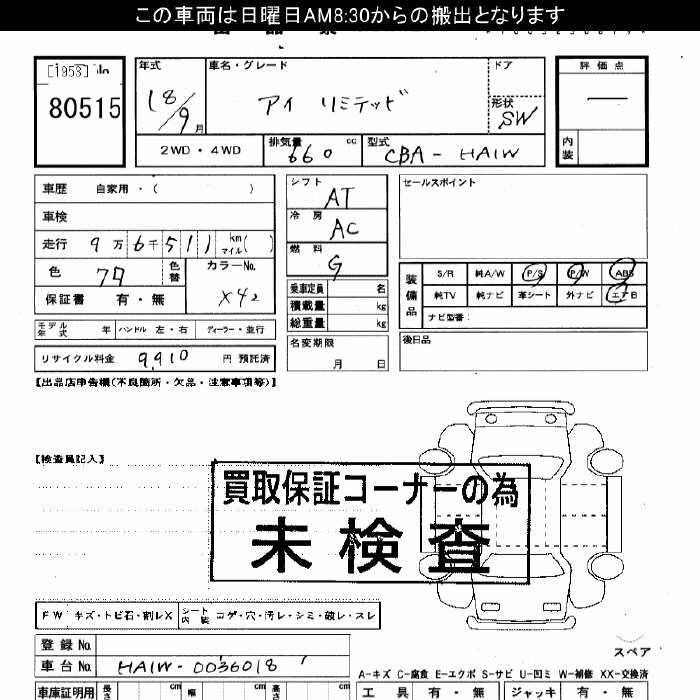 この車両は日曜日AM8:30からの搬出となります
[1953]
80515
年式 18/9月
車名・グレード アイ リミテッド
ドア
形状 SW
評価点 ―
内装
2WD・4WD
排気量 660 cc
型式 CBA-HA1W
車歴 自家用・( )
車検
走行 9万6千511 km マイル( )
色 クロ 色替
カラーNo. X42
保証書 有・無
モデル年式 年 ハンドル 左・右 ディーラー・並行
リサイクル料金 9,910 円 預託済
シフト AT
冷房 AC
燃料 G
乗車定員 名
積載量 kg
総重量 kg
名変期限 月 日
セールスポイント
装備品
S/R 純A/W P/S P/W ABS
純TV 純ナビ 革シート 外ナビ エアB
ナビ型番:
後日品
【出品店申告欄(不良箇所・欠品・注意事項等)】
【検査員記入】
買取保証コーナーの為
未検査
FW キズ・トビ石・割レX
シート内装 コゲ・穴・汚レ・シミ・破レ・スレ
登録No.
車台No. HA1W-0036018
スペア
A-キズ C-腐食 E-エクボ S-サビ U-凹ミ W-補修 XX-交換済
車庫証明用 長さ cm 幅 cm 高さ cm
工具 有・無 ジャッキ 有・無